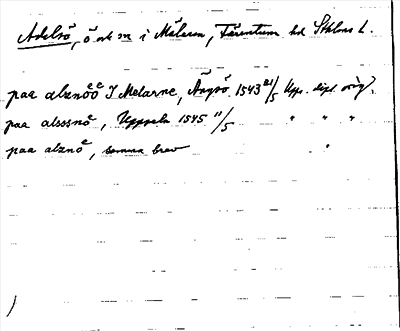 Adelsö, ö och sn i Mälaren, Färentuna hd Sthlms l.
paa alznöö I Melarne, Ängsö 1543 21/5 Upps. dipl. orig.
paa alsssnö, Uppsala 1545 11/5 " " "
paa alznö, samma brev "